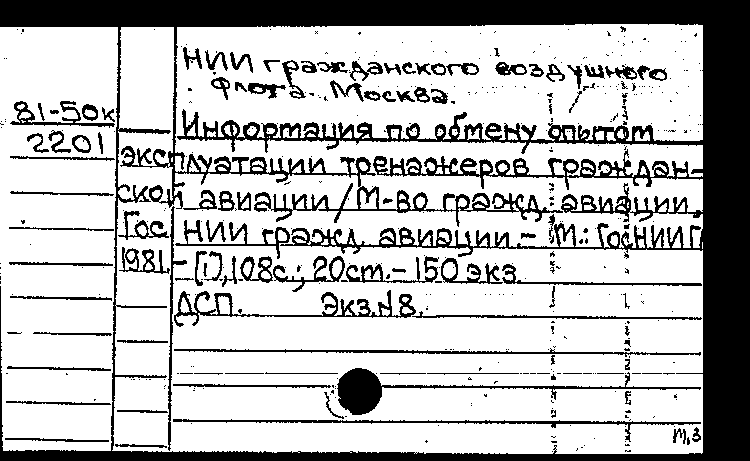 НИИ гражданского воздушного
флота. Москва.
81-50к
2201
Информация по обмену опытом
эксплуатации тренажеров граждан-
ской авиации/М-во гражд. авиации,
Гос НИИ гражд. авиации.- М.: ГосНИИГА
1981. - [1], 108с.; 20см.- 150 экз.
ДСП. Экз.№8.
м,3